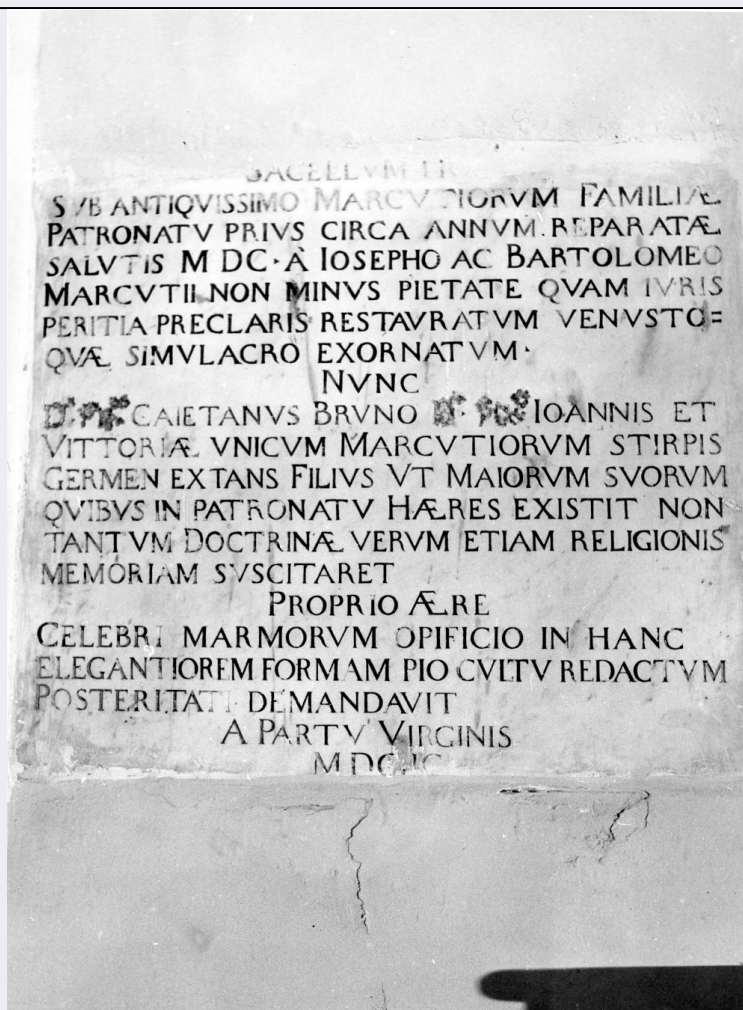 SACELLVM
SVB ANTIQVISSIMO MARCVTIORVM FAMILIÆ
PATRONATV PRIVS CIRCA ANNVM REPARATÆ
SALVTIS M DC· À IOSEPHO AC BARTOLOMEO
MARCVTII NON MINVS PIETATE QVAM IVRIS
PERITIA PRECLARIS RESTAVRATVM VENVSTO=
QVÆ SIMVLACRO EXORNATVM·
NVNC
CAIETANVS BRVNO IOANNIS ET
VITTORIÆ VNICVM MARCVTIORVM STIRPIS
GERMEN EXTANS FILIVS VT MAIORVM SVORVM
QVIBVS IN PATRONATV HÆRES EXISTIT NON
TANTVM DOCTRINÆ VERVM ETIAM RELIGIONIS
MEMORIAM SVSCITARET
PROPRIO ÆRE
CELEBRI MARMORVM OPIFICIO IN HANC
ELEGANTIOREM FORMAM PIO CVLTV REDACTVM
POSTERITATI DEMANDAVIT
A PARTV VIRGINIS